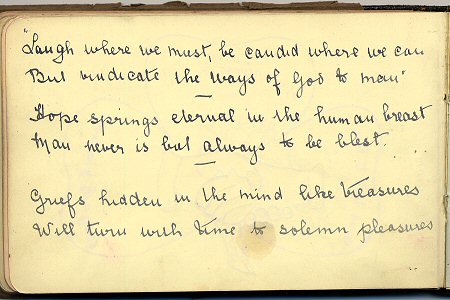 "Laugh where we must, be candid where we can
But vindicate the ways of God to man"
—
Hope springs eternal in the human breast
Man never is but always to be blest.
—
Griefs hidden in the mind like treasures
Will turn with time to solemn pleasures